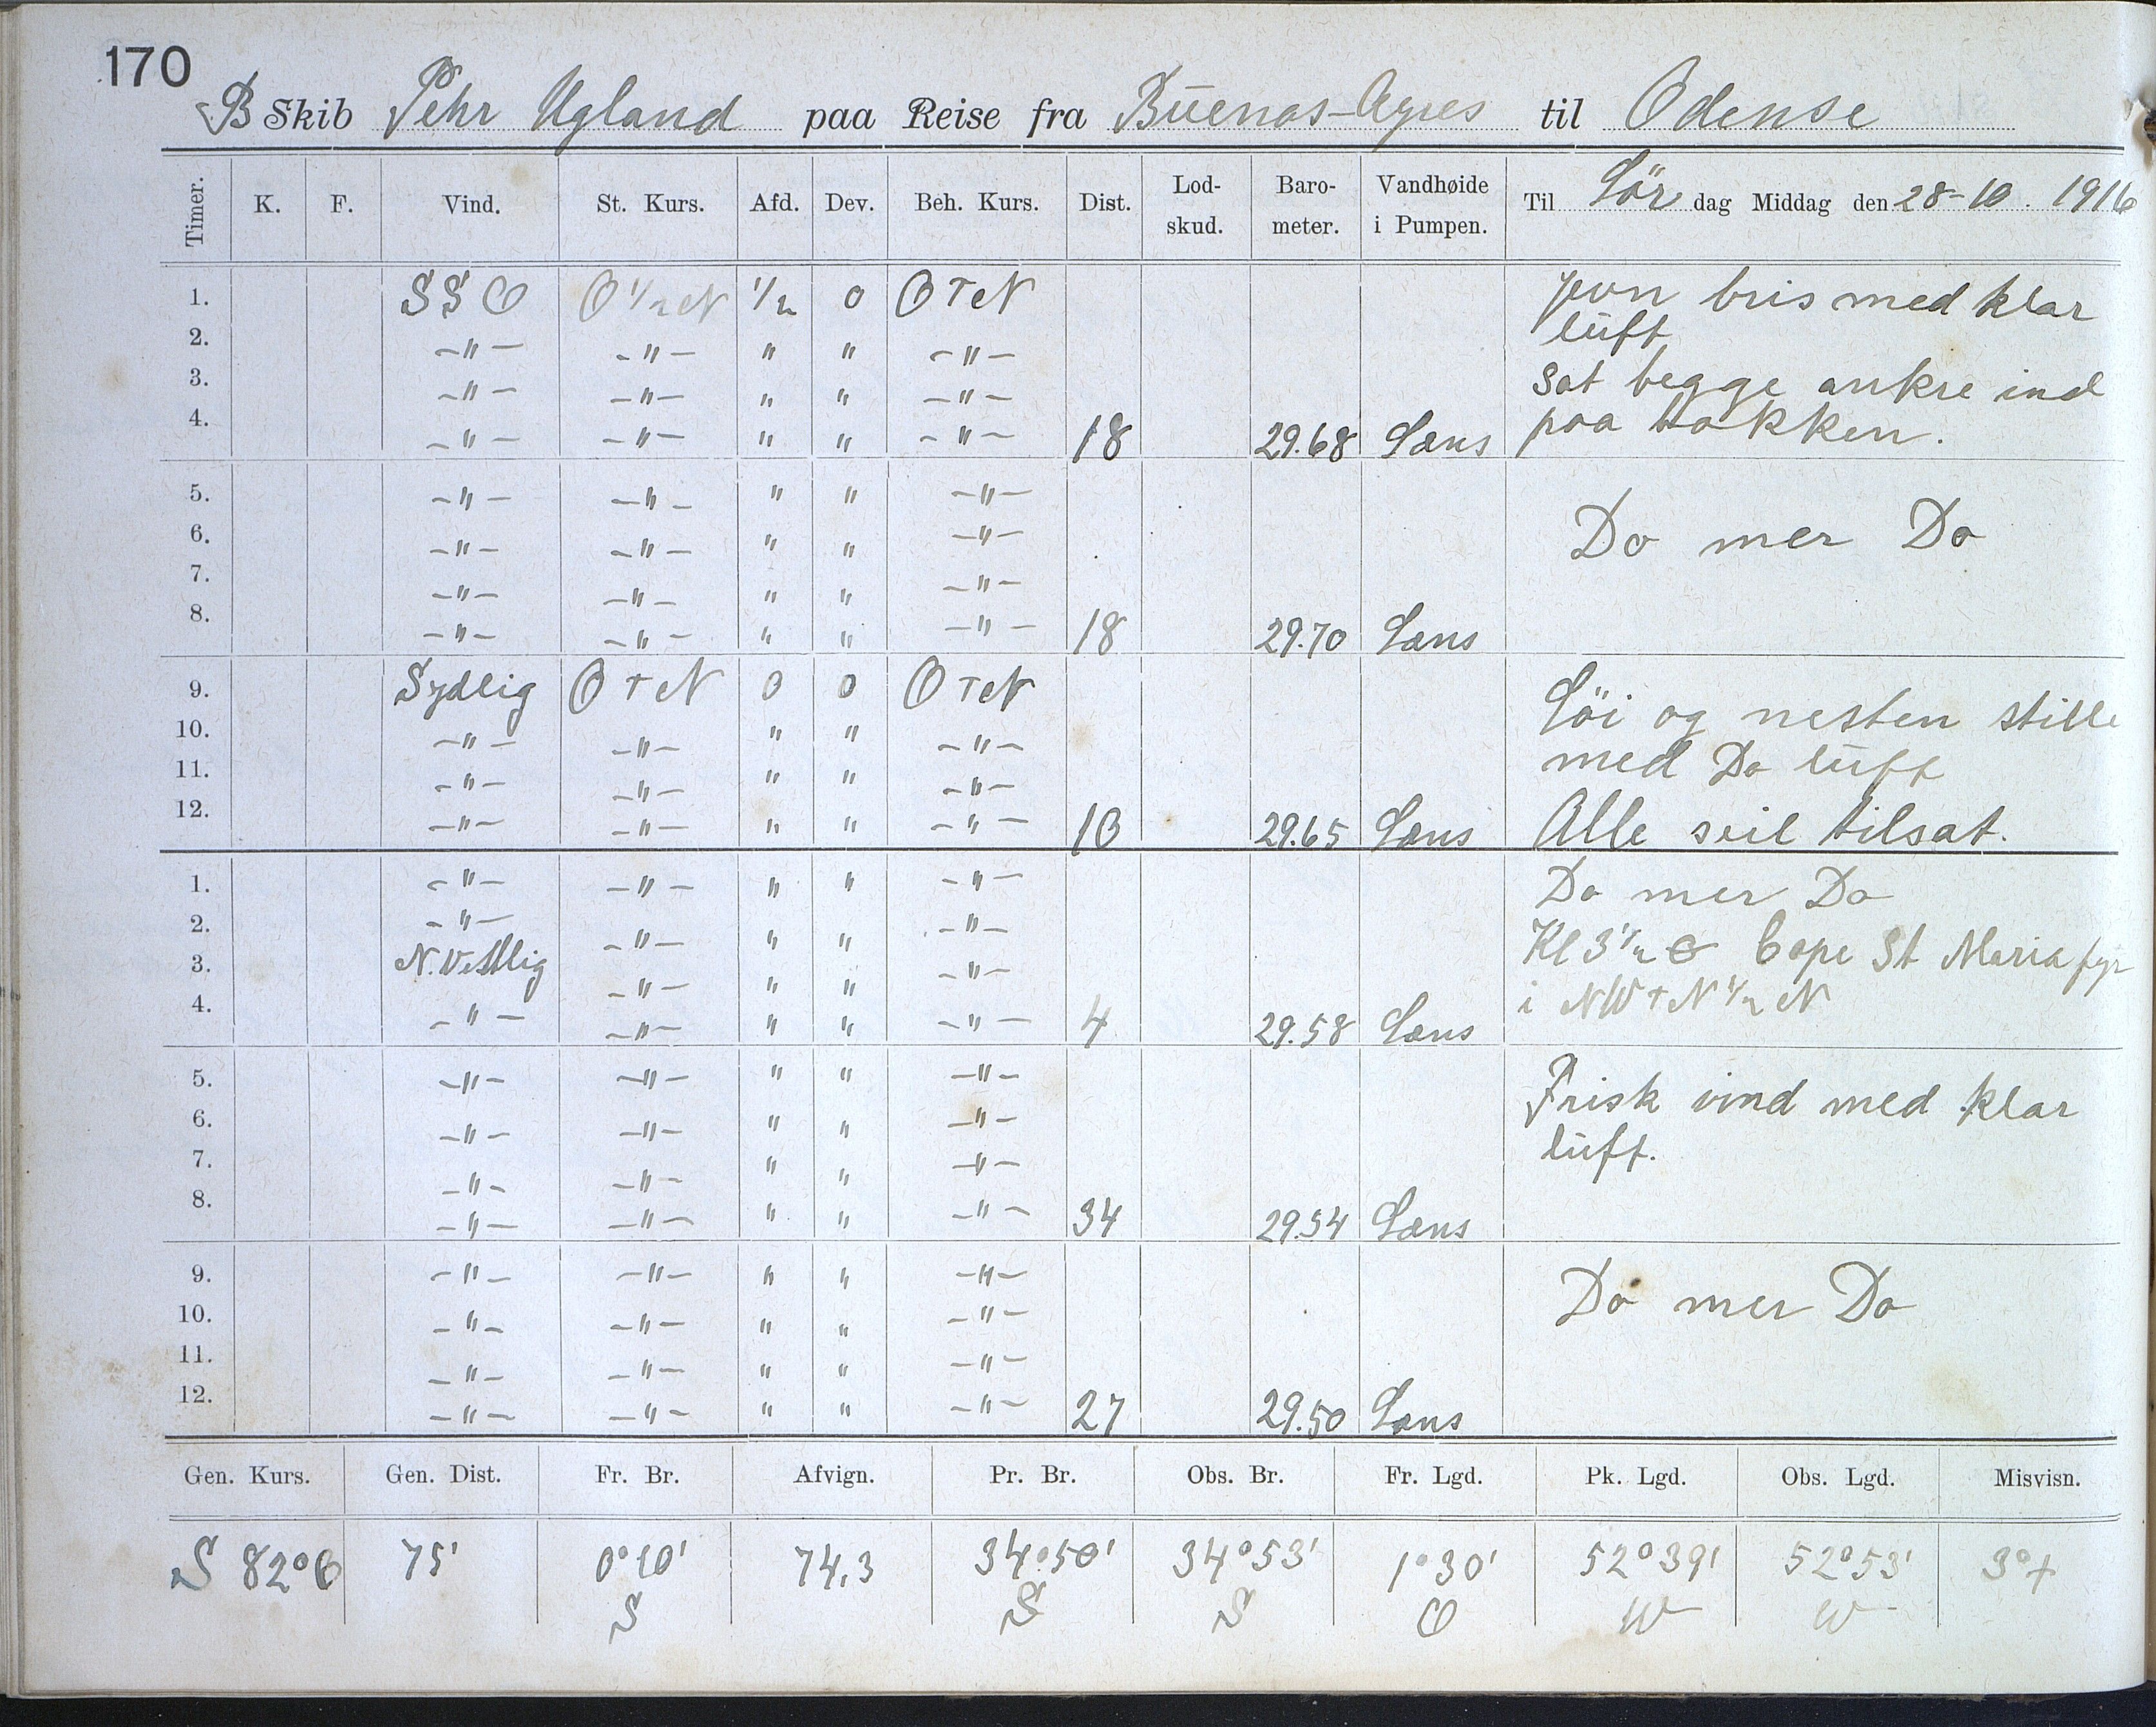 170
B Skib Pehr Ugland paa Reise fra Buenos-Ayres til Odense
Timer. K. F. Vind. St. Kurs. Afd. Dev. Beh. Kurs. Dist. Lod-skud. Baro-meter. Vandhøide i Pumpen. Til Lör dag Middag den 28-10. 1916
1. SSO O 1/2 N 1/2 0 O T N pen bris med klar
2. -"- -"- " " -"- luft
3. -"- -"- " " -"- Sat begge ankre ind
4. -"- -"- " " -"- 18 29.68 Læns paa bakken.
5. -"- -"- " " -"-
6. -"- -"- " " -"- Do mer Do
7. -"- -"- " " -"-
8. -"- -"- " " -"- 18 29.70 Læns
9. Sydlig O T N 0 0 O T N Löi og nesten stille
10. -"- -"- " " -"- med Do luft
11. -"- -"- " " -"-
12. -"- -"- " " -"- 10 29.65 Læns Alle seil tilsat.
1. -"- -"- " " -"- Do mer Do
2. -"- -"- " " -"- Kl 3 1/2 Cape St Maria fyr
3. N.Vestlig -"- " " -"-
4. -"- -"- " " -"- 4 29.58 Læns i NW T N 1/2 N
5. -"- -"- " " -"- Frisk vind med klar
6. -"- -"- " " -"- luft.
7. -"- -"- " " -"-
8. -"- -"- " " -"- 34 29.54 Læns
9. -"- -"- " " -"- Do mer Do
10. -"- -"- " " -"-
11. -"- -"- " " -"-
12. -"- -"- " " -"- 27 29.50 Læns
Gen. Kurs. Gen. Dist. Fr. Br. Afvign. Pr. Br. Obs. Br. Fr. Lgd. Pk. Lgd. Obs. Lgd. Misvisn.
S 82° O 75' 0° 10' 74,3 34° 50' 34° 53' 1° 30' 52° 39' 52° 53' 3° +
S S S O W W